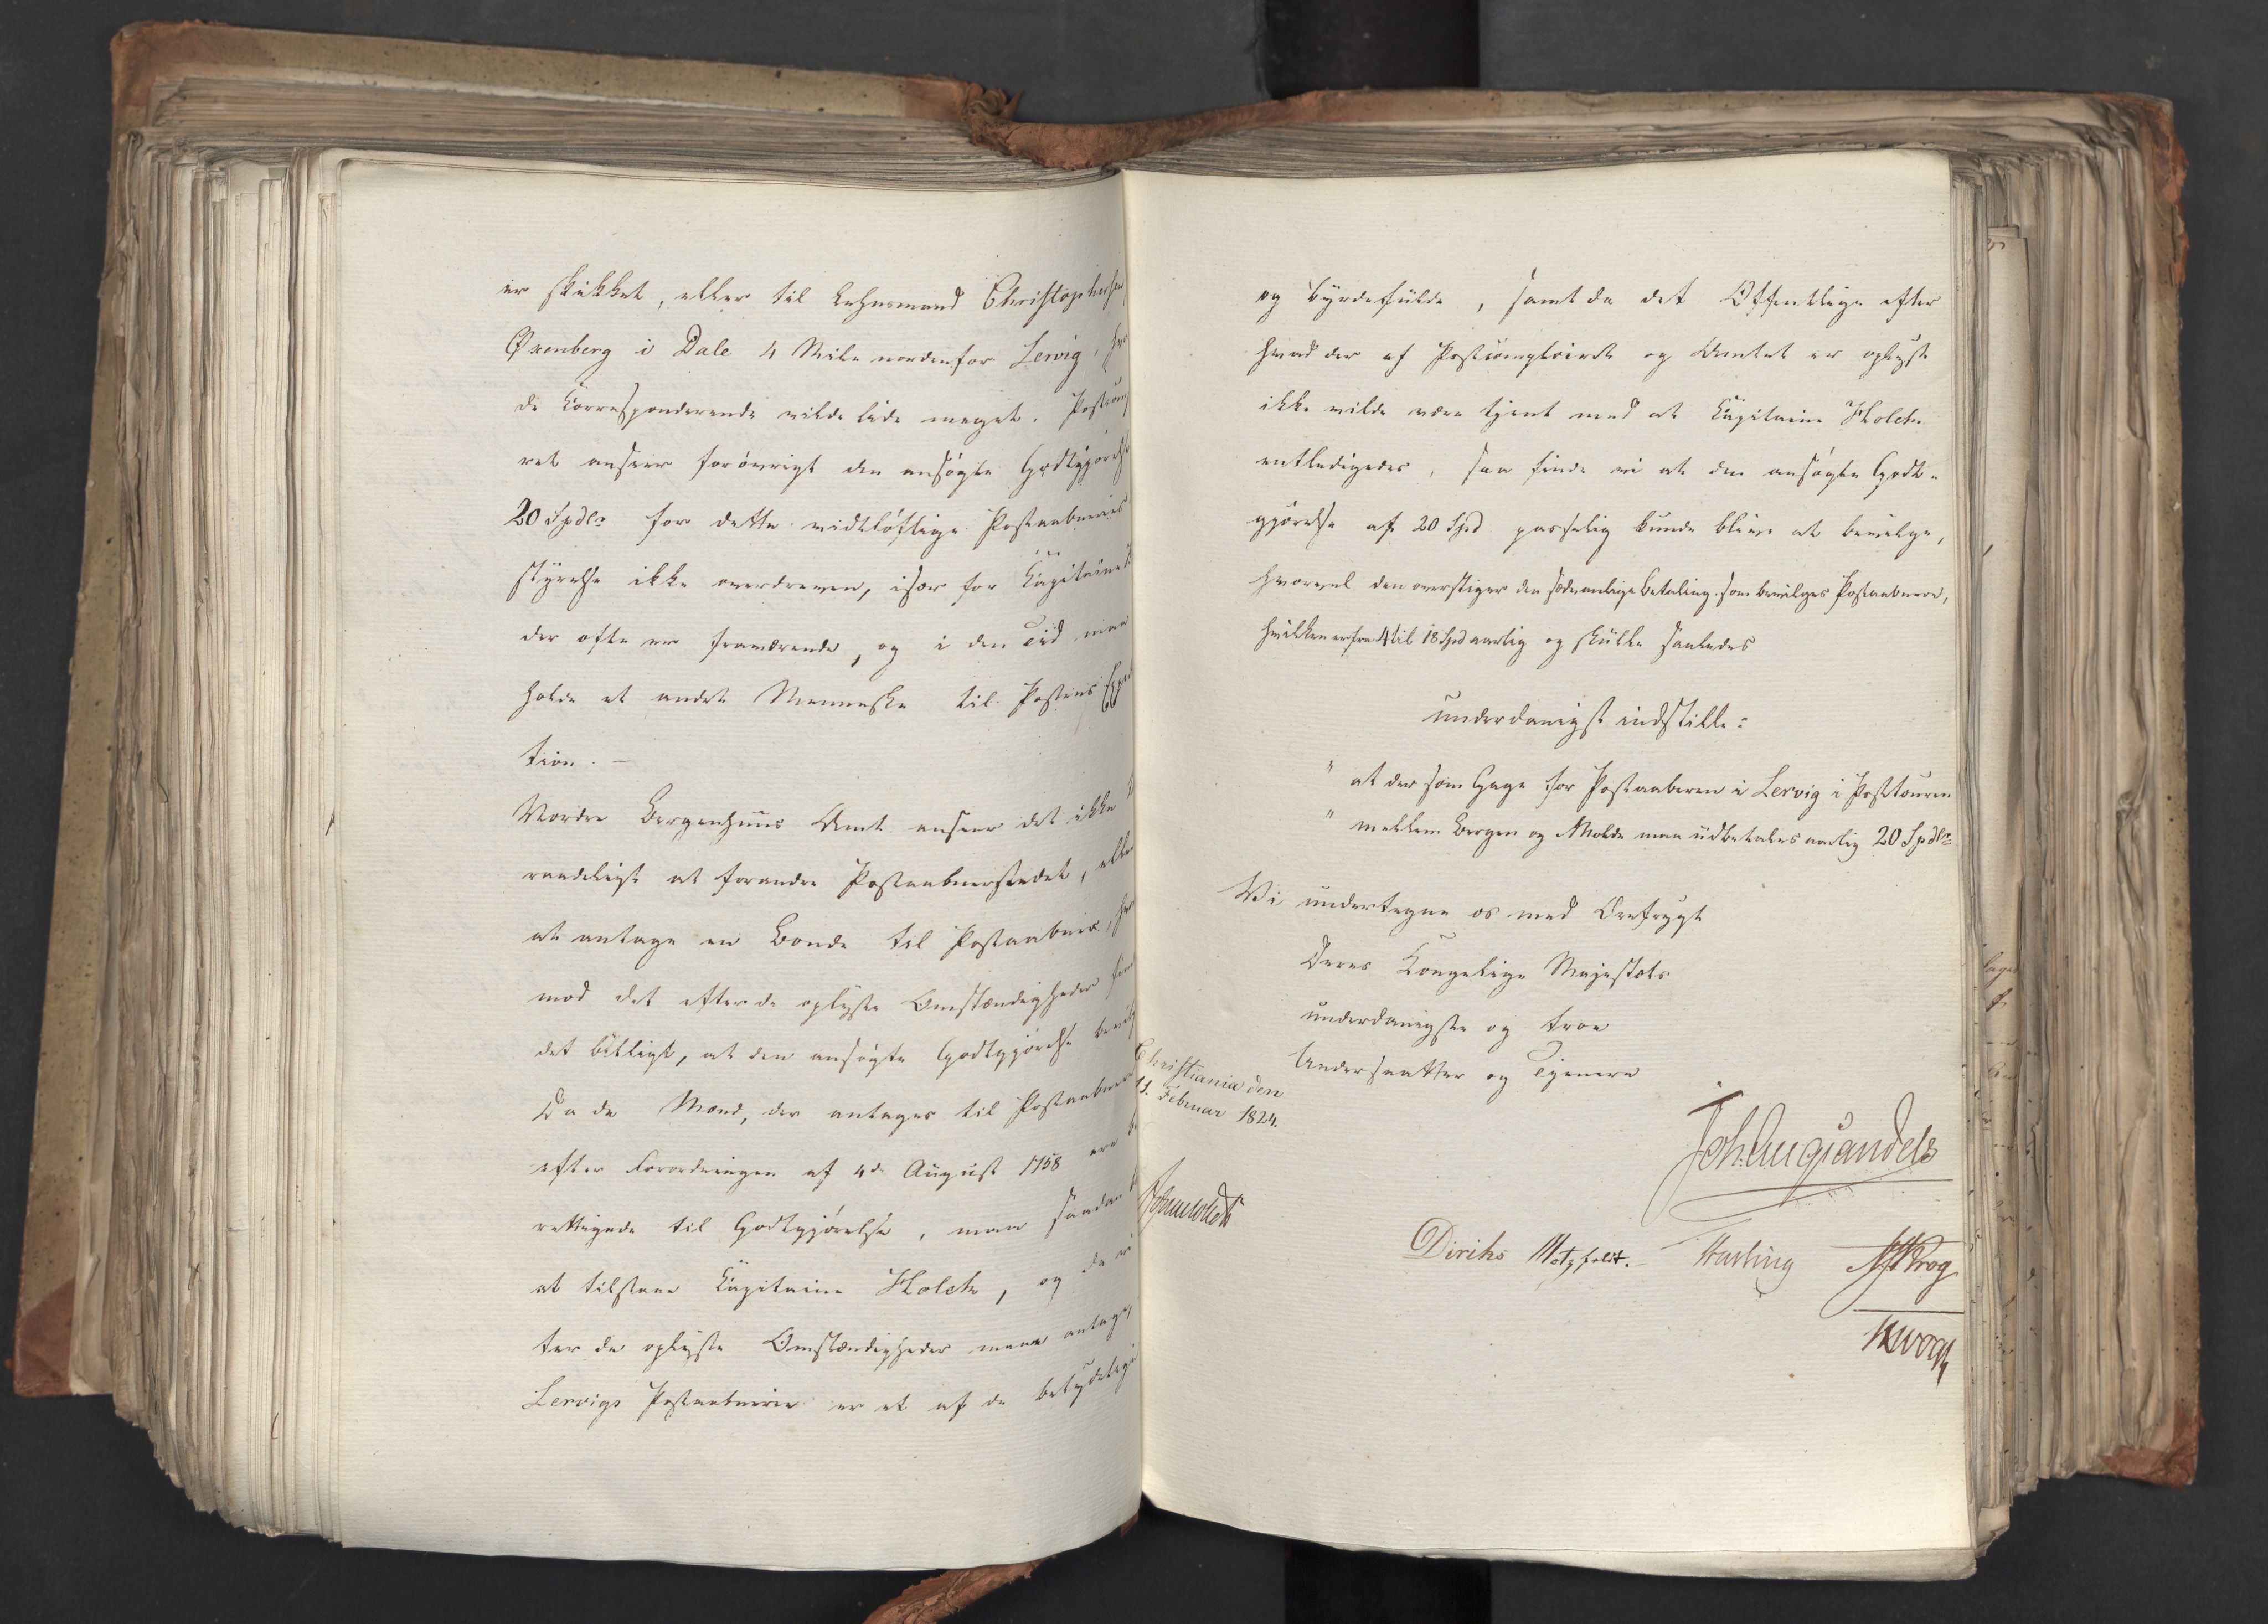 er skikket, eller til Lehnsmand Christophersen
Øxenberg i Dale 4 Mile nordenfor Lervig,
de Corresponderende vilde lide meget.
ret anseer forøvrigt den ansøgte Godtgjørelse
20 Spdlr for dette vidtløftige Postaabneries
styrelse ikke overdreven, især for Capitainen
der ofte er fraværende, og i den Tid maa
holde et andet Menneske til Postens Expedi
tion. —
Nordre Bergenhuus Amt anseer det ikke
raadeligt at forandre Postaabnerstedet, eller
at antage en Bonde til Postaabner,
mod det efter de oplyste Omstændigheder
det billigt, at den ansøgte Godtgjørelse
Da de Mænd, der antages til Postaabnere
efter Forordningen af 4de August 1758 ere
rettigede til Godtgjørelse, maa saadan
at tilstaae Capitaine Holck, og da
ter de oplyste Omstændigheder maae antage,
Lervigs Postaabnerie er et af de
og byrdefulde, samt da det Offentlige efter
hvad der af Postcomptoiret og Amtet er oplyst
ikke vilde være tjent med at Capitaine Holck
entledigedes, saa finde vi at den ansøgte Godt-
gjørelse af 20 Spd passelig kunde blive at bevilge,
hvorvel den overstiger den sædvanlige Betaling som bevilges Postaabnere,
hvilken er fra 4 til 18 Spd aarlig og skulle saaledes
underdanigst indstille:
" at der som Gage for Postaabneren i Lervig i Posttouren
" mellem Bergen og Molde maa udbetales aarlig 20 Spdlr
Vi undertegne os med Ærefrygt
Deres Kongelige Majestæts
underdanigste og troe
Undersaatter og Tjenere
Christiania den
11. Februar 1824.
Joh. Aug. Sandels
Diriks Motzfeldt. Krog